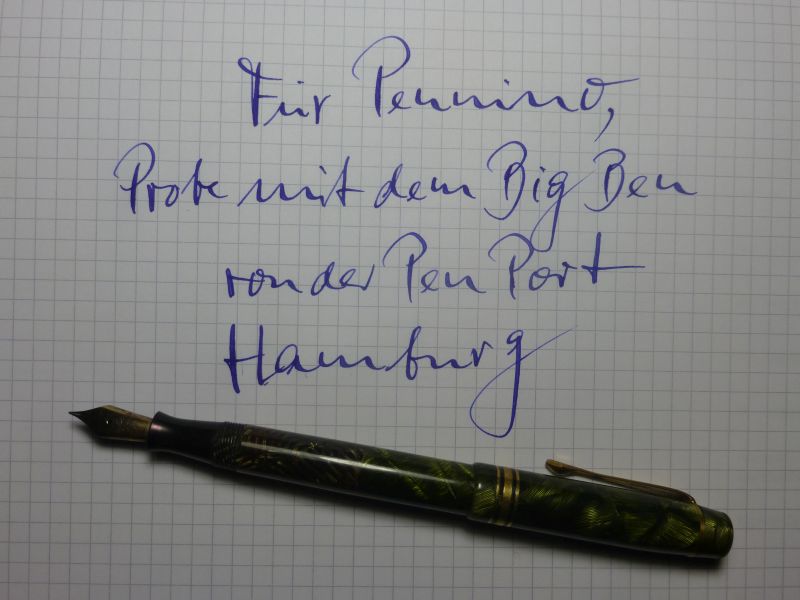 Für Pennino,
Probe mit dem Big Ben
von der Pen Port
Hamburg